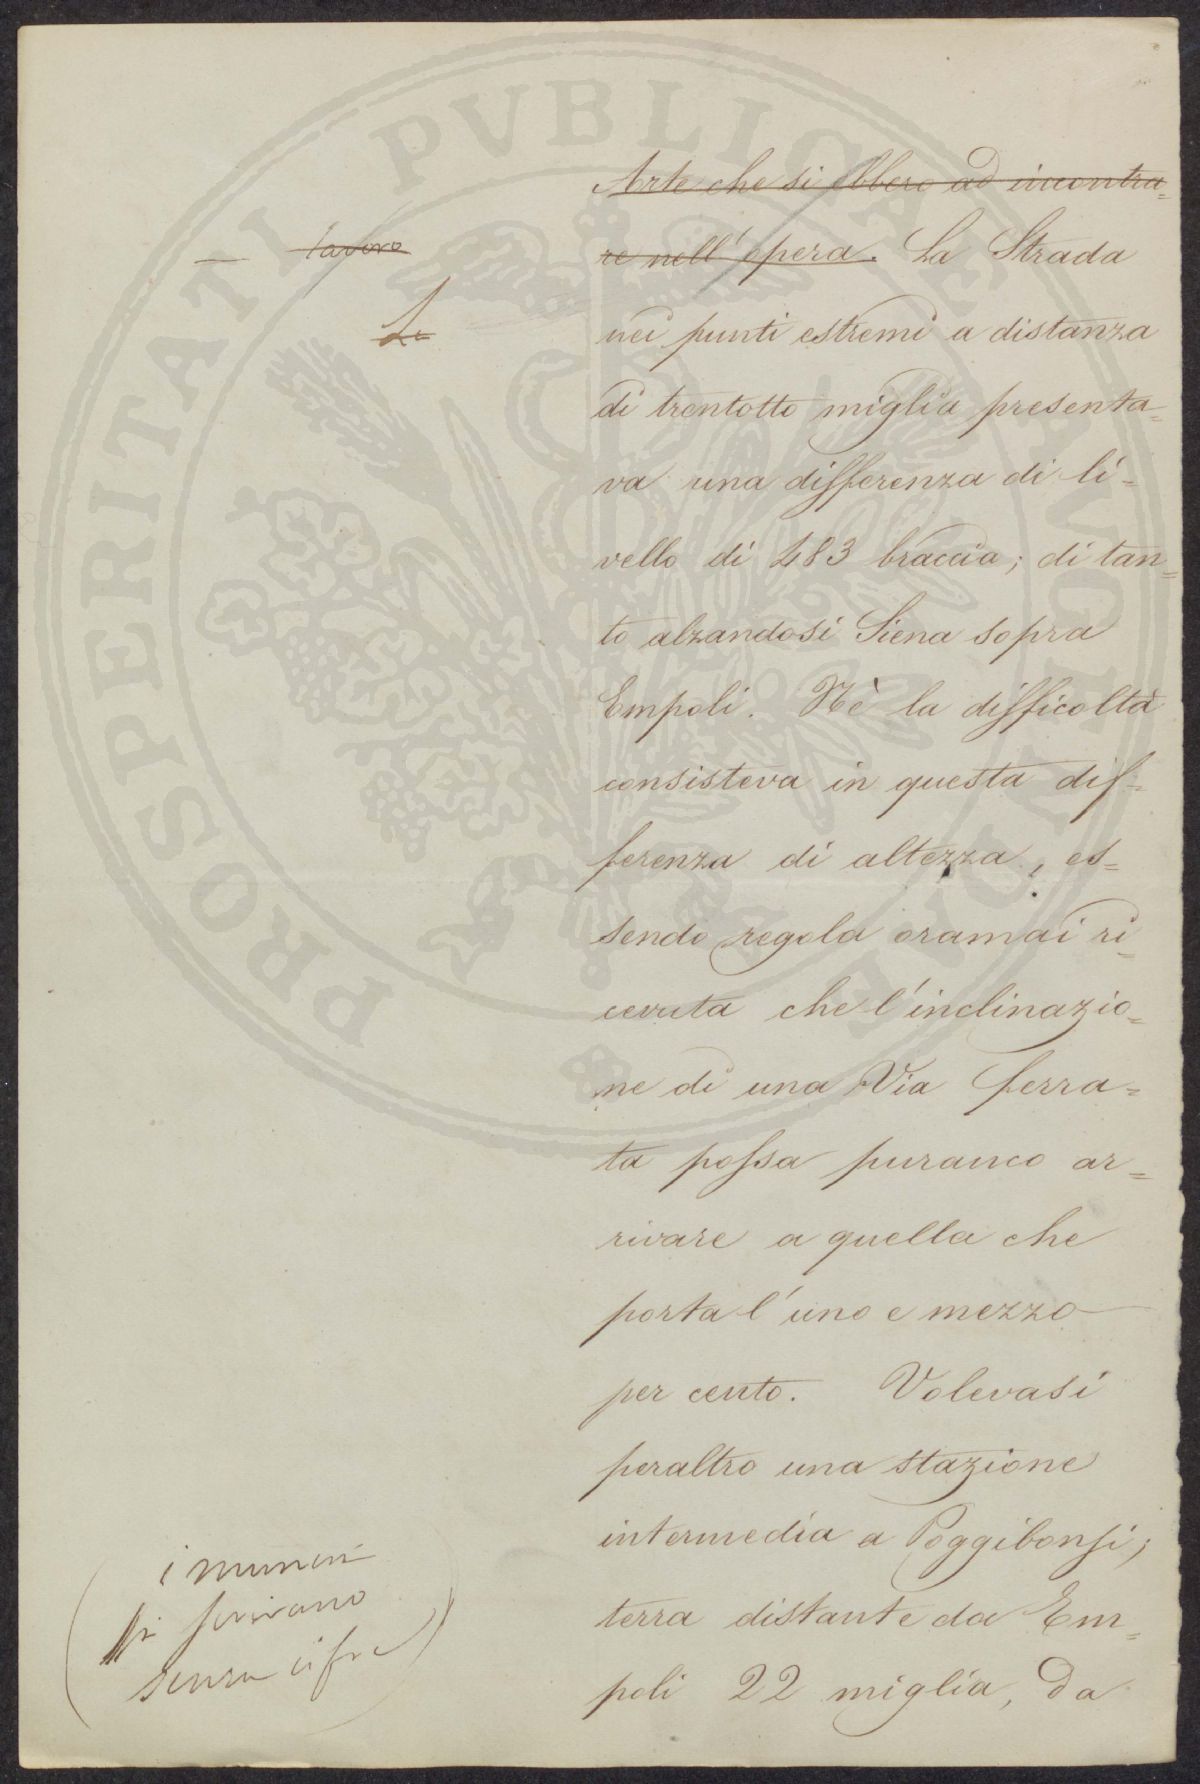 Arte che si ebbero ad incontra=
re nell'opera. La Strada
lavoro
La
nei punti estremi a distanza
di trentotto miglia presenta=
va una differenza di li=
vello di 483 braccia; di tan=
to alzandosi Siena sopra
Empoli. Nè la difficoltà
consisteva in questa dif=
ferenza di altezza, es=
sendo regola oramai ri=
cevuta che l'inclinazio=
ne di una Via ferra=
ta possa puranco ar=
rivare a quella che
porta l'uno e mezzo
per cento. Volevasi
peraltro una stazione
intermedia a Poggibonsi;
terra distante da Em=
poli 22 miglia, da
(i numeri
si scrivano
senza cifre)
PROSPERITATI PVBLICAE AVGENDAE